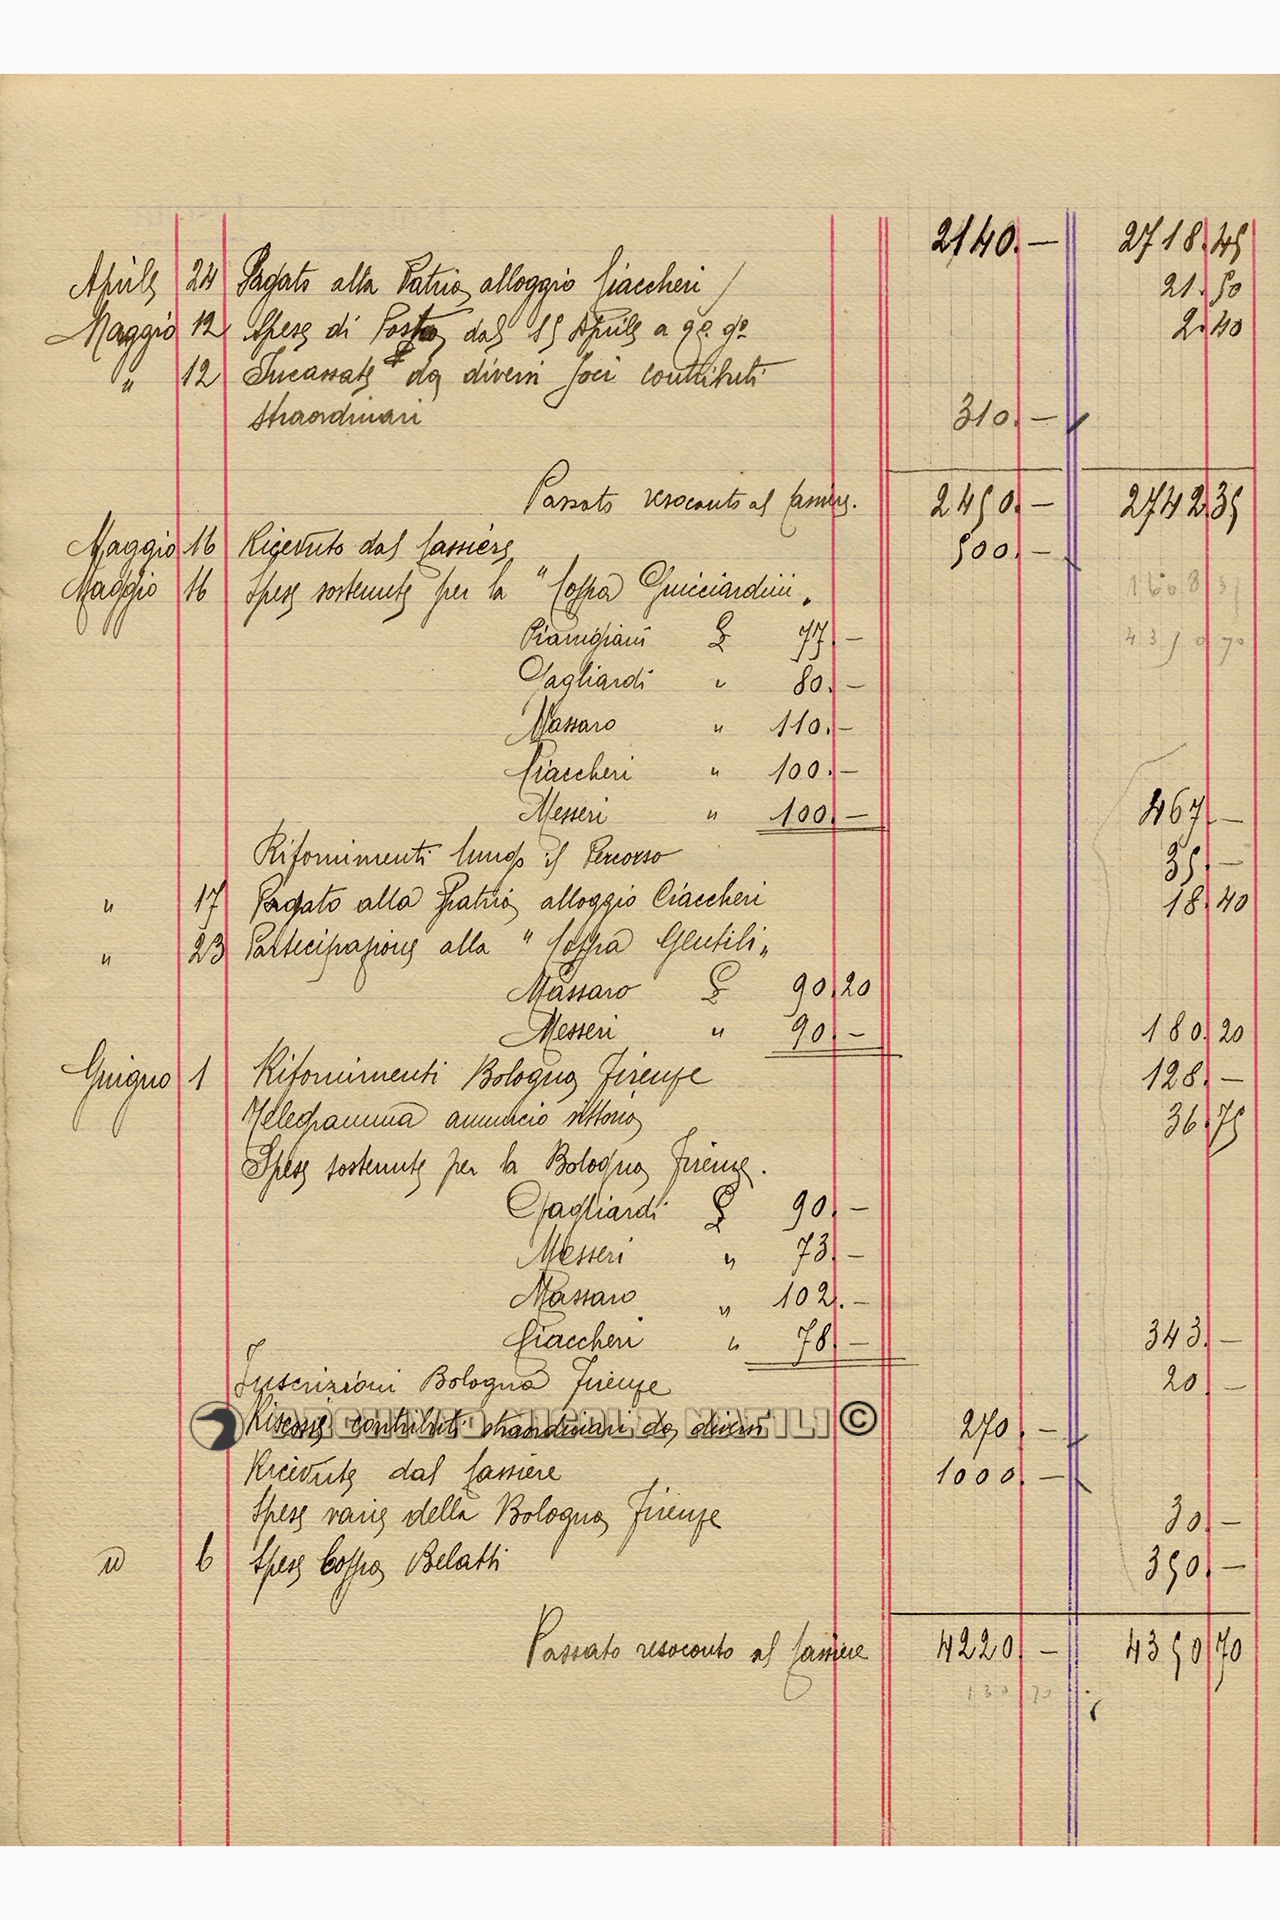 2140.— 2718.45
Aprile 24 Pagato alla Patria, alloggio Ciaccheri 21.50
Maggio 12 Spese di Posta dal 15 Aprile a 2.40
" 12 Incassate da diversi soci contributi
straordinari 310.—
Passato resoconto al Cassiere. 2450.— 2742.35
Maggio 16 Ricevuto dal Cassiere 500.—
Maggio 16 Spese sostenute per la "Coppa Guicciardini" 1608 35
Pianigiani £ 77.— 4350 70
Gagliardi " 80.—
Massaro " 110.—
Ciaccheri " 100.—
Messeri " 100.— 467.—
Rifornimenti lungo il Percorso 35.—
" 17 Pagato alla Patria, alloggio Ciaccheri 18.40
" 23 Partecipazione alla "Coppa Gentili"
Massaro £ 90.20
Messeri " 90.— 180.20
Giugno 1 Rifornimenti Bologna Firenze 128.—
Telegramma annuncio vittoria 36.75
Spese sostenute per la Bologna Firenze.
Gagliardi £ 90.—
Messeri " 73.—
Massaro " 102.—
Ciaccheri " 78.— 343.—
Inscrizioni Bologna Firenze 20.—
Riscossi contributi straordinari da diversi 270.—
ARCHIVIO NICOLA NATILI ©
Ricevute dal Cassiere 1000.—
Spese varie della Bologna Firenze 30.—
" 6 Spese Coppa Belatti 350.—
Passato resoconto al Cassiere 4220.— 4350.70
130 70